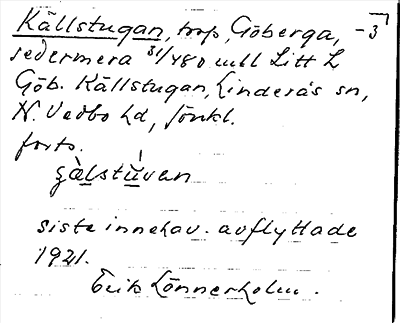 Källstugan, torp, Göberga, -3
sedermera 31/480 mtl Litt L
Göb. Källstugan, Linderås sn,
N. Vedbo hd, Jönkl.
forts.
ʂàlstúvan
siste innehav. avflyttade
1921.
Erik Lönnerholm.